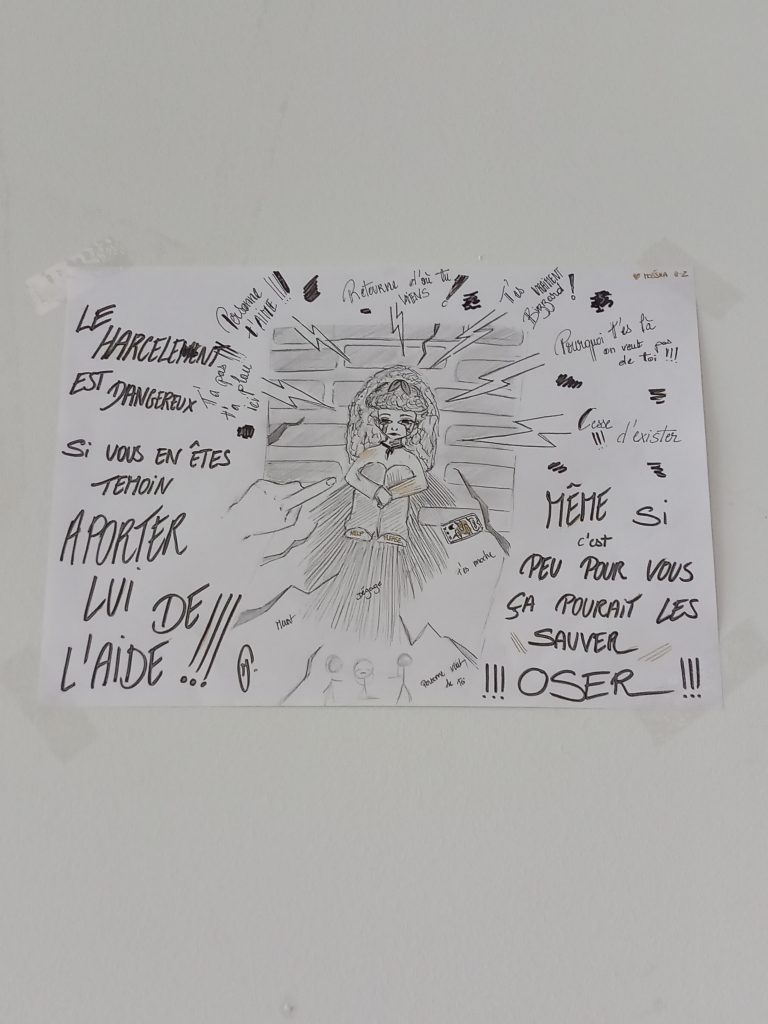 LE
HARCELEMENT
EST DANGEREUX
SI VOUS EN ÊTES
TEMOIN
APORTER
LUI DE
L'AIDE !!!
Personne
t'AIME !!!
Retourne d'où tu
VIENS !
T'es VRAIMENT
Bizzard !
MAÏSSA 6-2
Pourquoi t'es là
on veut pas
de toi !!!
T'a pas !!!
ta place
ici
Cesse
!!! d'existER
HELP PLEASE
T'es moche
Dégage
Meurt
Personne veut
de toi
MÊME Si
c'est
PEU POUR VOUS
ÇA POURAIT LES
SAUVER
!!! OSER !!!